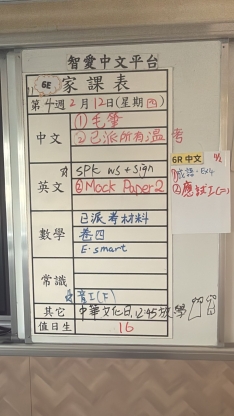 智愛中文平台
6E 家課表
第4週2月12日(星期四)
中文 ①毛筆
②已派所有溫考
英文 SPK ws + sign
②Mock Paper 2
數學 已派考材料
卷四
E-smart
常識
音I(下)
其它 中華文化日,12:45放學
值日生 16
6R 中文
成語-Ex4